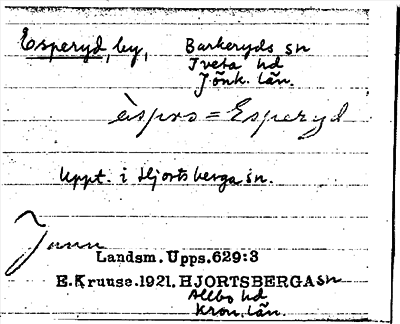 Esperyd, by, Barkeryds sn
Tveta hd
Jönk. län.
èspro = Esperyd
Uppt. i Hjortsberga sn.
Landsm. Upps. 629:3
E. Kruuse. 1921. HJORTSBERGA sn
Allbo hd
Kron. län.